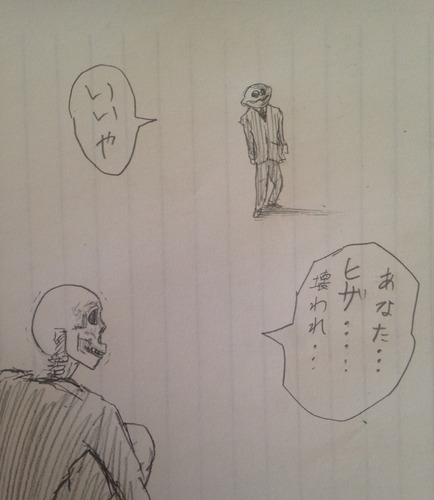 あなた……
ヒザ……
壊われ…
いいや